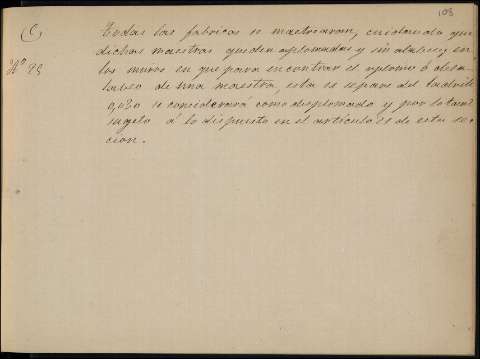 103
(C)
Todas las fabricas se maestrearan, cuidando que
dichas maestras queden aplomadas y sin alabeo, en
Nº 93
los muros en que para encontrar el aplomo ó desa-
labeo de una maestra, esta se separe del ladrillo
0,030 se considerará como desplomado y por lo tanto
sugeto á lo dispuesto en el artículo de esta sec-
cion.